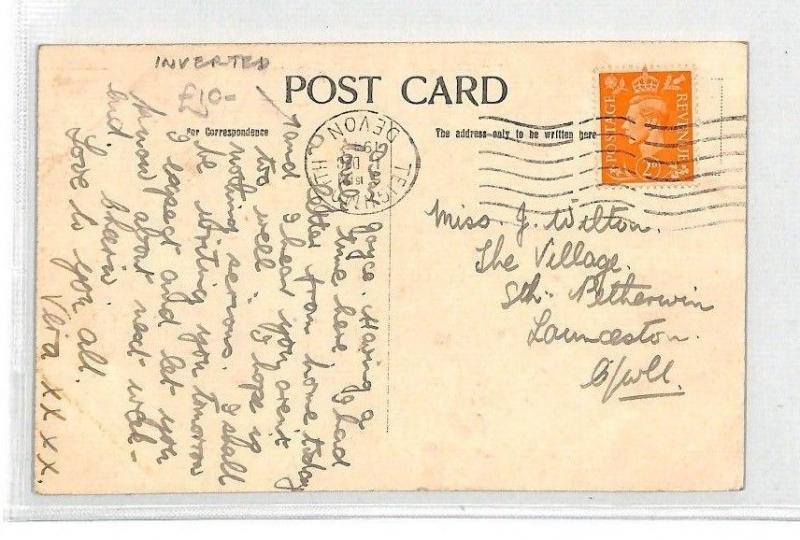 INVERTED
£10-
POST CARD
For Correspondence
The address only to be written here
POSTAGE
REVENUE
2D
TEIGNMOUTH
DEVON
DEC
Dear Joyce. Having a
time here. I had
letter from home today
and I hear you aren't
too well. Do hope is
nothing serious. I shall
be writing you tomorrow
I expect and let you
know about next week-
end.
Love to you all.
Vera xxxx.
Miss. J. Wilton.
The Village.
Sth. Petherwin
Launceston.
C/wll.